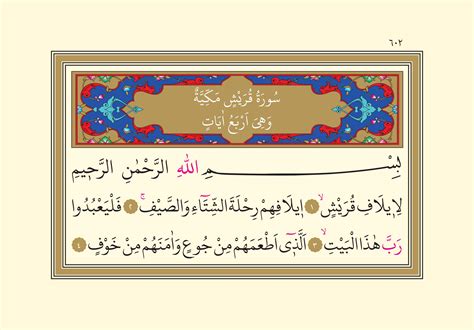 ٦٠٢
سُورَةُ قُرَيْشٍ مَكِّيَّةٌ
وَهِيَ اَرْبَعُ اٰيَاتٍ
بِسْمِ اللّٰهِ الرَّحْمٰنِ الرَّح۪يمِ
لِا۪يلَافِ قُرَيْشٍۙ ﴿١﴾ ا۪يلَافِهِمْ رِحْلَةَ الشِّتَٓاءِ وَالصَّيْفِۚ ﴿٢﴾ فَلْيَعْبُدُوا
رَبَّ هٰذَا الْبَيْتِۙ ﴿٣﴾ اَلَّذ۪ٓي اَطْعَمَهُمْ مِنْ جُوعٍ وَاٰمَنَهُمْ مِنْ خَوْفٍ ﴿٤﴾